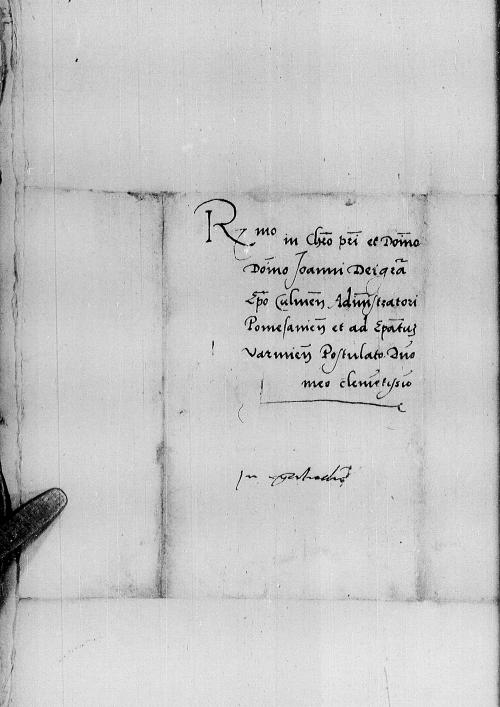 R mo in Chro pri et Domo
Domo Joanni Dei gra
Epo Culmen Administratori
Pomesanien et ad Epatus
varmien Postulato Dno
meo clemetissio